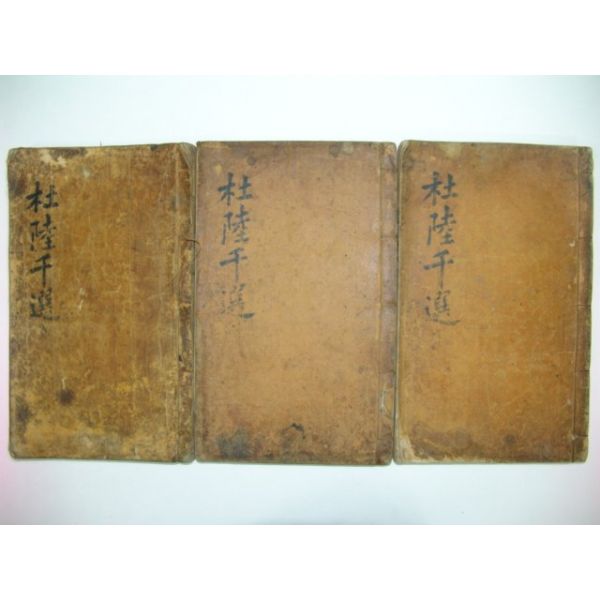 杜陸千選
杜陸千選
杜陸千選